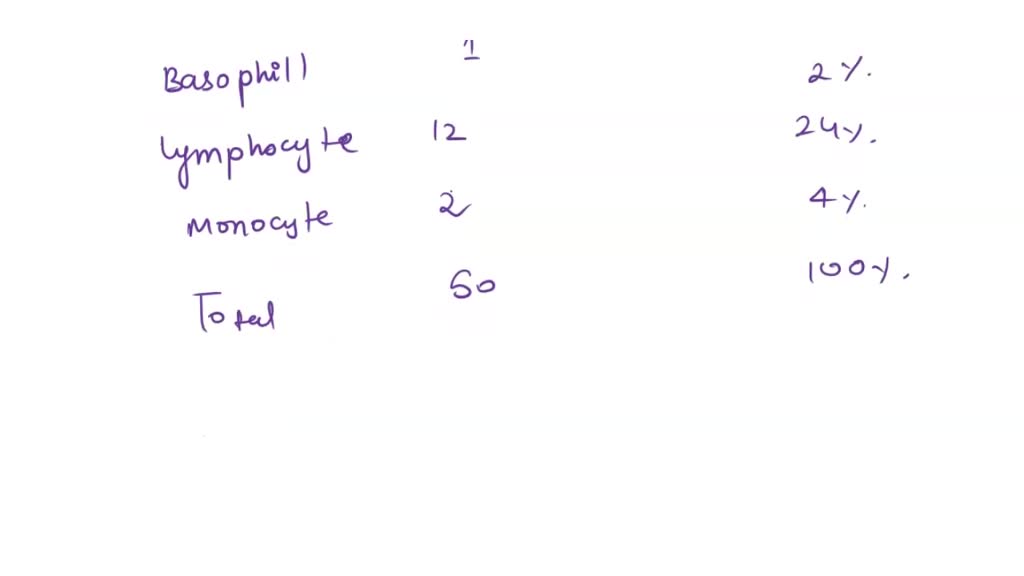 Basophill 1 2%.
Lymphocyte 12 24%.
Monocyte 2 4%.
Total 50 100%.